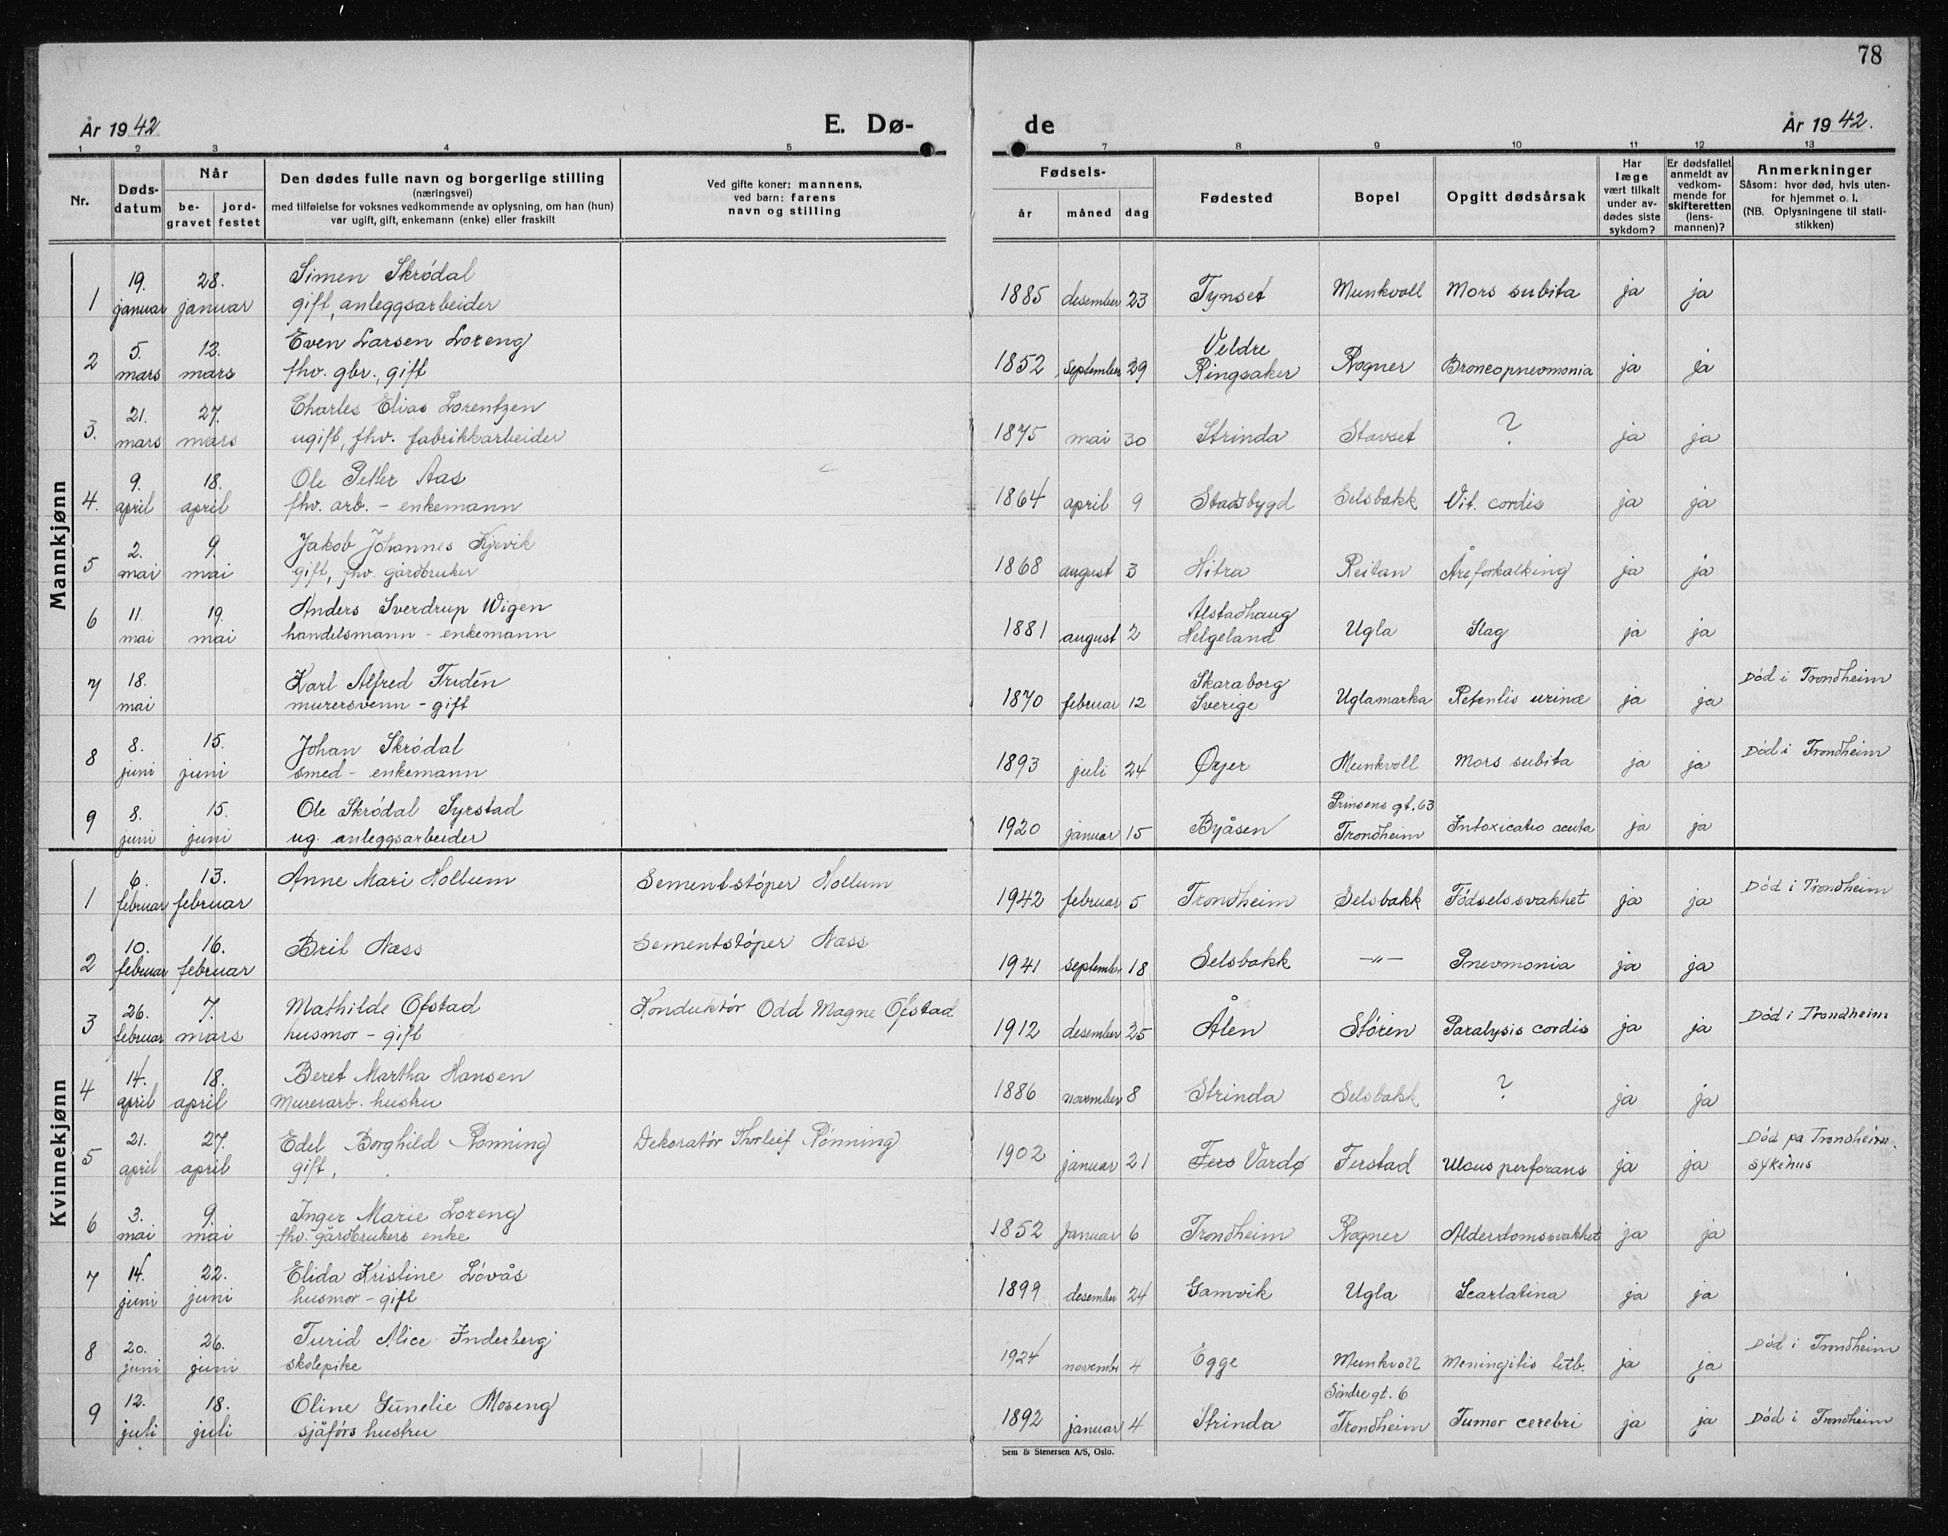 78
År 1942 E. Dø- de År 1942.
1 2 3 4 5 7 8 9 10 11 12 13
Nr.
Døds-
datum
Når
be-
gravet
jord-
festet
Den dødes fulle navn og borgerlige stilling
(næringsvei)
med tilføielse for voksnes vedkommende av oplysning, om han (hun)
var ugift, gift, enkemann (enke) eller fraskilt
Ved gifte koner: mannens,
ved barn: farens
navn og stilling
Fødsels-
år måned dag
Fødested
Bopel
Opgitt dødsårsak
Har
læge
vært tilkalt
under av-
dødes siste
sykdom?
Er dødsfallet
anmeldt av
vedkom-
mende for
skifteretten
(lens-
mannen)?
Anmerkninger
Såsom: hvor død, hvis uten-
for hjemmet o. l.
(NB. Oplysningene til stati-
stikken)
Mannkjønn
1 19. januar 28. januar Simen Skródal
gift, anleggsarbeider 1885 desember 23 Tynset Munkvoll Mors subita ja ja
2 5. mars 12. mars Even Larsen Loreng
fhv. gbr., gift 1852 september 29 Veldre
Ringsaker Rogner Broncopnevmonia ja ja
3. 21. mars 27. mars Charles Elias Lorentzen
ugift, fhv. fabrikkarbeider 1875 mai 30 Strinda Stavset ? ja ja
4. 9. april 18. april Ole Petter Aas
fhv. arb. - enkemann 1864 april 9 Stadsbygd Selsbakk Vit. cordis ja ja
5 2. mai 9. mai Jakob Johannes Kjevik
gift, fhv. gårdbruker 1868 august 3 Hitra Reitan Åreforkalking ja ja
6 11. mai 19. mai Anders Sverdrup Wigen
handelsmann - enkemann 1881 august 2 Alstadhaug
Helgeland Ugla Slag ja ja
7 18. mai Karl Alfred Fridén
murersvenn - gift 1870 februar 12 Skaraborg
Sverige Uglamarka Retentis urinæ ja ja Død i Trondheim
8 8. juni 15. juni Johan Skródal
smed - enkemann 1893 juli 24 Øyer Munkvoll Mors subita ja ja Død i Trondheim
9 8. juni 15. juni Ole Skródal Syrstad
ug. anleggsarbeider 1920 januar 15 Byåsen Prinsens gt. 63
Trondheim Intoxicatio acuta ja ja
Kvinnekjønn
1 6. februar 13. februar Anne Mari Hollum Sementstóper Hollum 1942 februar 5 Trondheim Selsbakk Fódselssvakhet ja ja Død i Trondheim
2 10. februar 16. februar Brit Næss Sementstóper Næss 1941 september 18 Selsbakk -"- Pnevmonia ja ja
3 26. februar 7. mars Mathilde Ofstad
husmor - gift Konduktór Odd Magne Ofstad 1912 desember 25 Ålen Støren Paralysis cordis ja ja Død i Trondheim
4 14. april 18. april Beret Martha Hansen
Murerarb. hustru 1886 november 8 Strinda Selsbakk ? ja ja
5 21. april 27. april Edel Borghild Rønning
gift, Dekoratór Thorleif Rónning 1902 januar 21 Vardø Ferstad Ulcus perforans ja ja Død på Trondheim.
sykehus
6 3. mai 9. mai Inger Marie Loreng
fhv. gårdbrukers enke 1852 januar 6 Trondheim Rogner Alderdomssvakhet ja ja
7 14. juni 22. juni Elida Kristine Lóvås
husmor - gift 1899 desember 24 Gamvik Ugla Scarlatina ja ja
8 20. juni 26. juni Turid Alice Inderberg
skolepike 1924 novembr 4 Egge Munkvoll Meningitis ja ja Død i Trondheim
9 12. juli 18. juli Oline Gunelie Moseng
sjåfórs hustru 1892 januar 4 Strinda Söndre gt. 6
Trondheim Tumor cerebri ja ja Død i Trondheim
Sem & Stenersen A/S, Oslo.